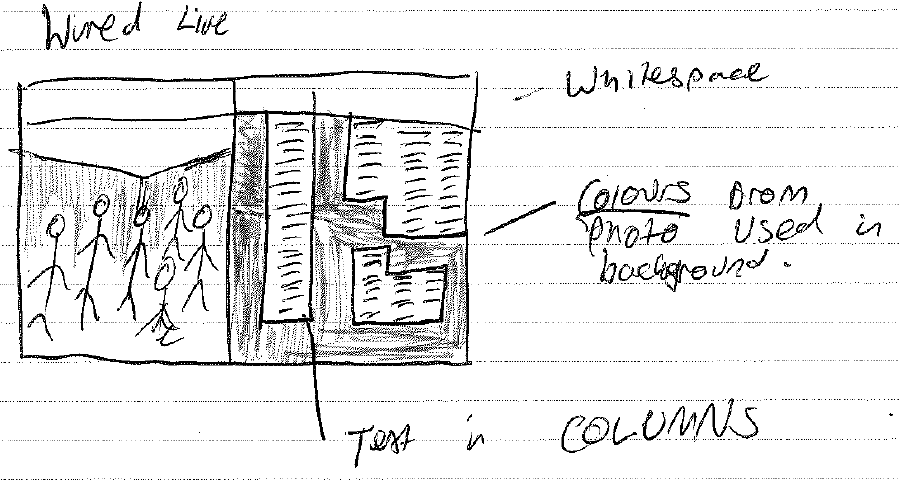 Wired Live
Whitespace
Colours from
photo used in
background.
Text in COLUMNS